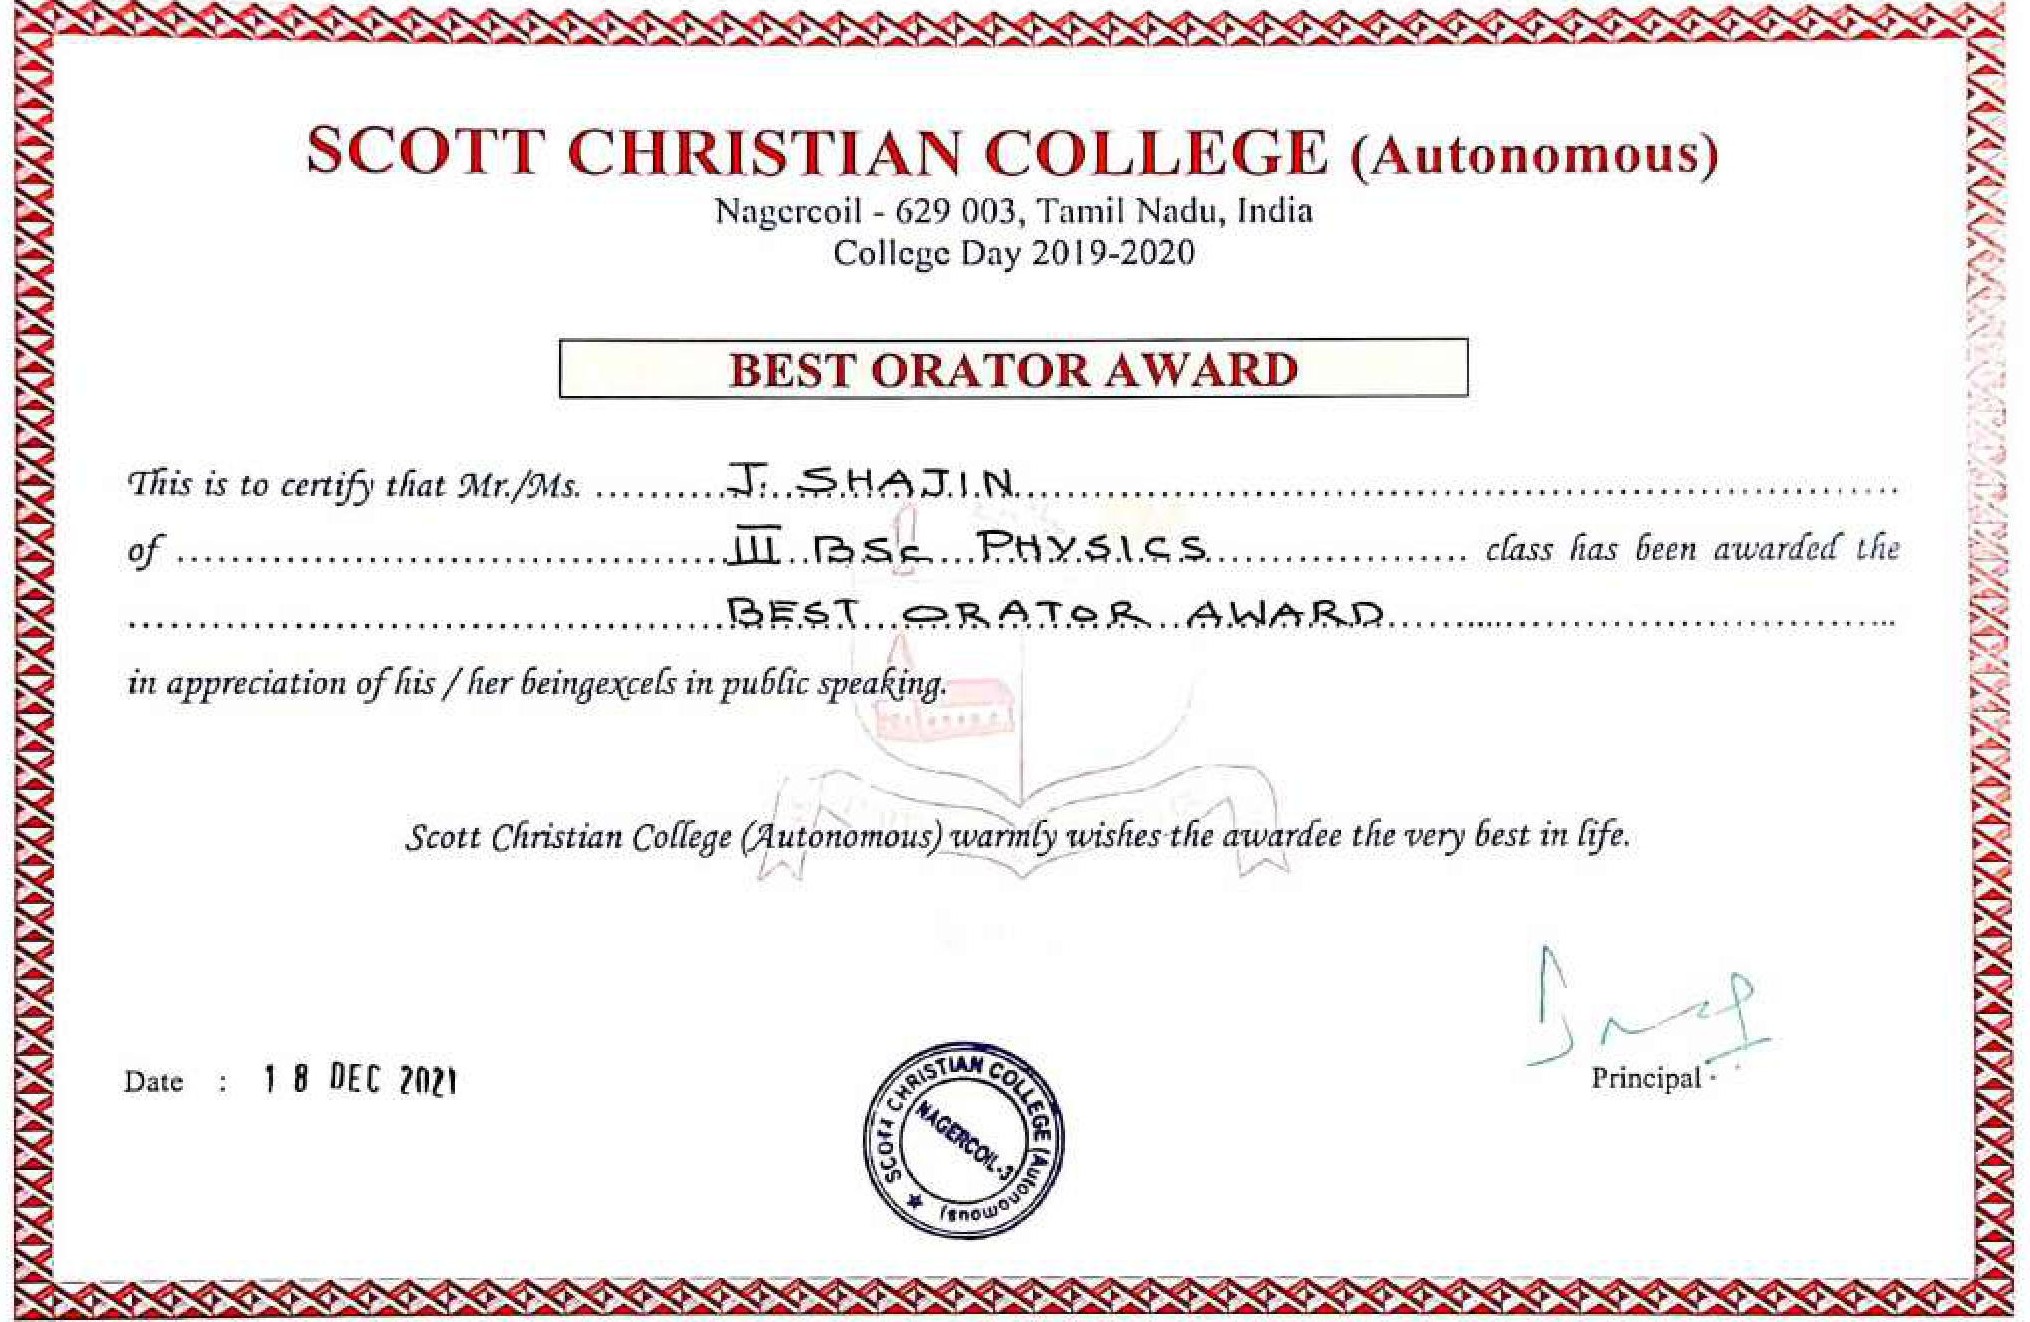 SCOTT CHRISTIAN COLLEGE (Autonomous)
Nagercoil - 629 003, Tamil Nadu, India
College Day 2019-2020
BEST ORATOR AWARD
This is to certify that Mr./Ms. J. SHAJIN
of III BSc PHYSICS class has been awarded the
BEST ORATOR AWARD
in appreciation of his / her beingexcels in public speaking.
Scott Christian College (Autonomous) warmly wishes the awardee the very best in life.
Date : 18 DEC 2021
SCOTT CHRISTIAN COLLEGE (Autonomous)
NAGERCOIL-3
Principal